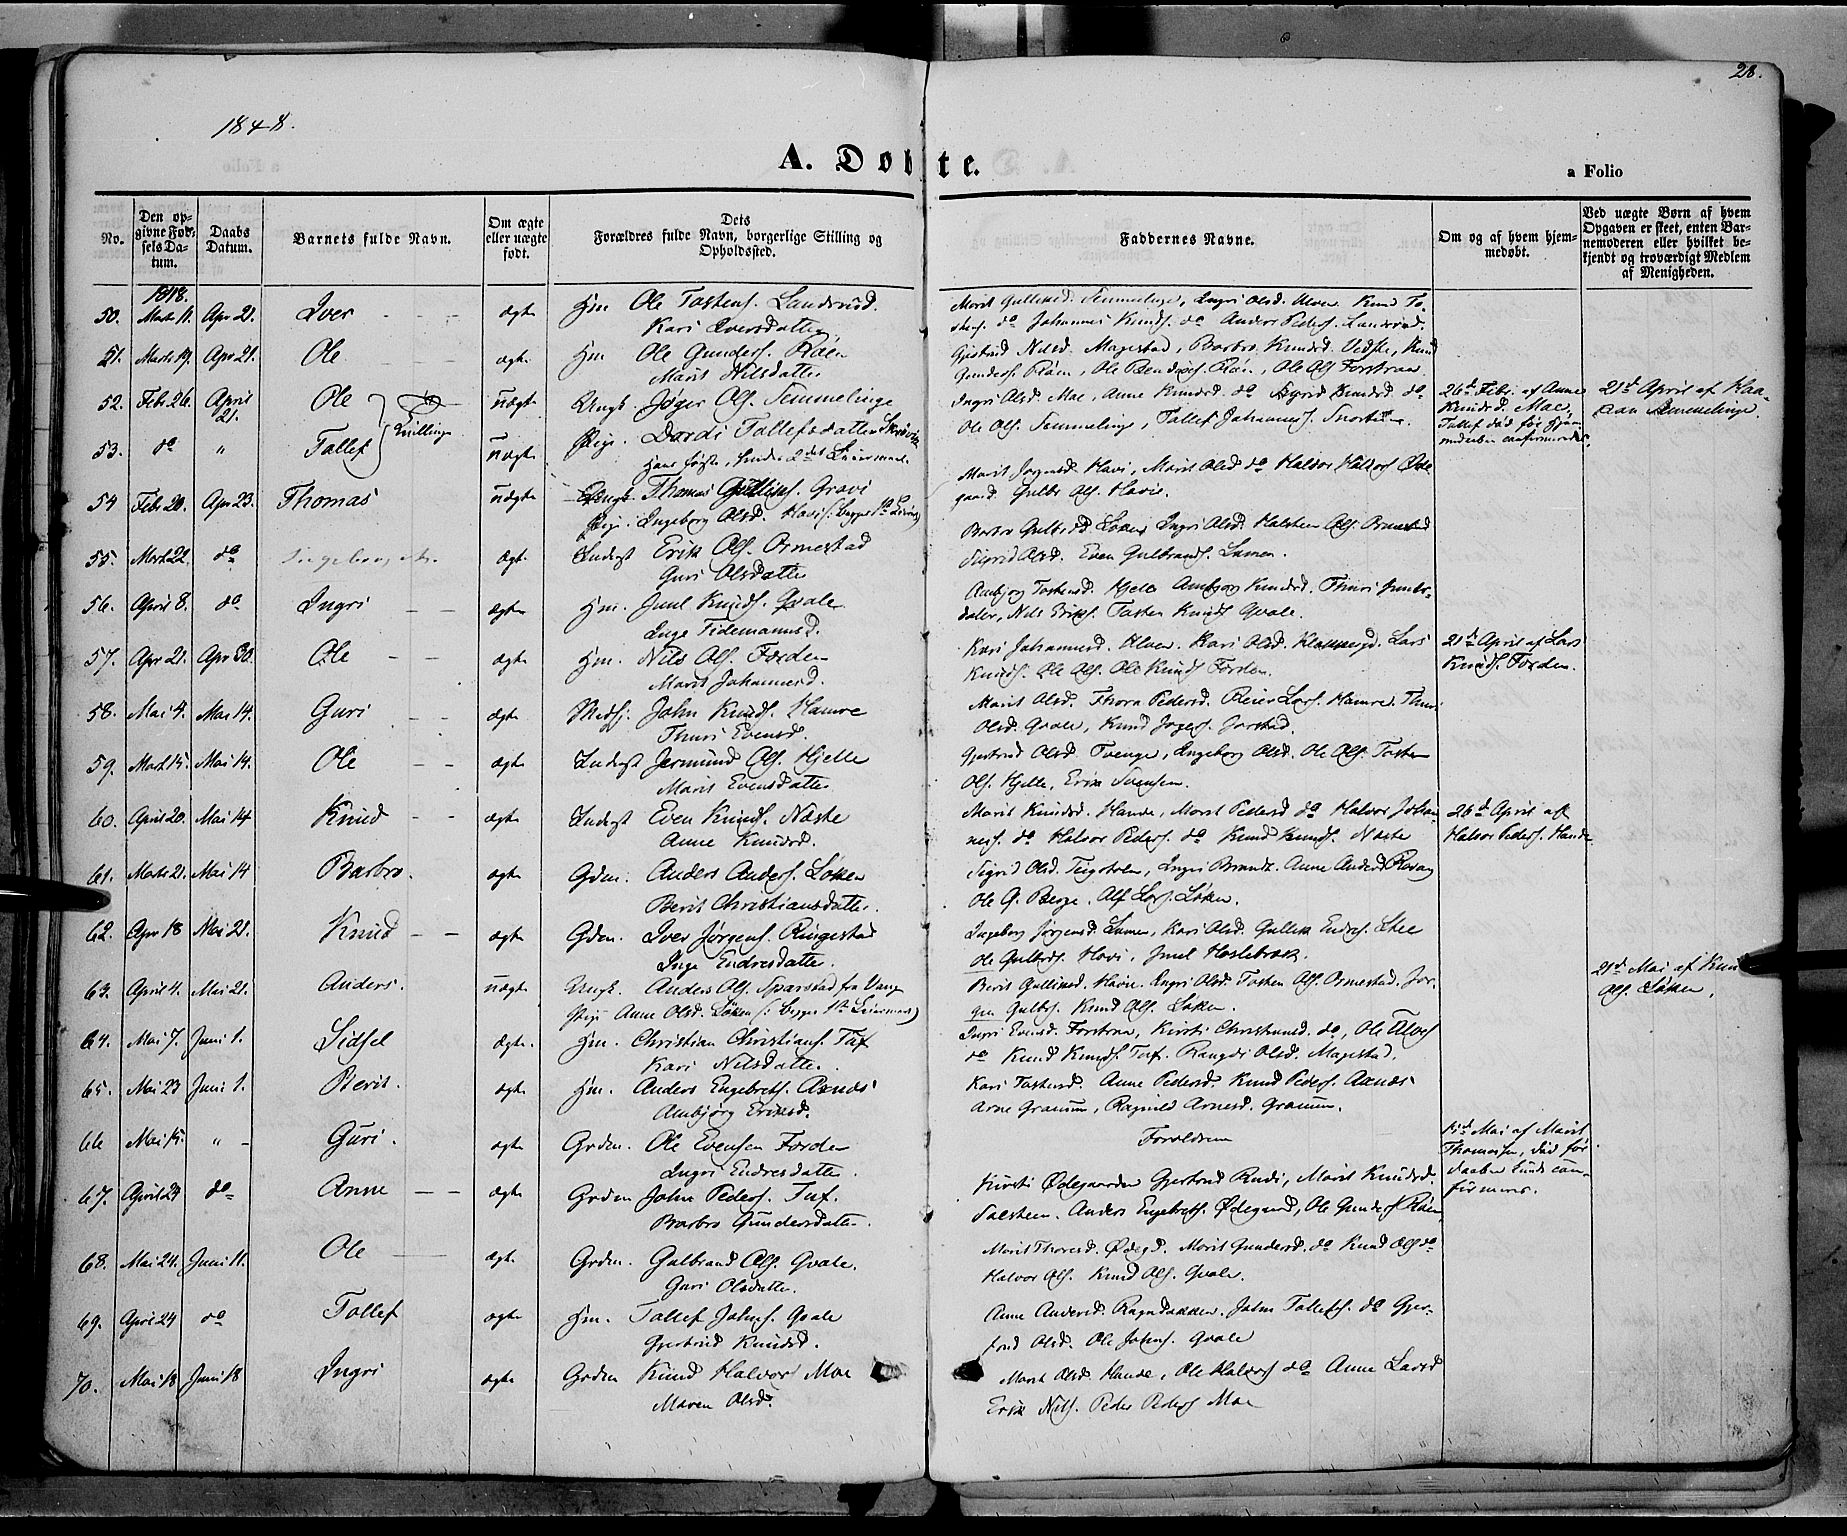 28.
1848.
A. Døbte.
a Folio
No.
Den op-
givne Fød-
sels Da-
tum.
Daabs
Datum.
Barnets fulde Navn.
Om ægte
eller uægte
født.
Dets
Forældres fulde Navn, borgerlige Stilling og
Opholdssted.
Faddernes Navne.
Om og af hvem hjem-
medøbt.
Ved uægte Børn af hvem
Opgaven er skeet, enten Bar-
nemoderen eller hvilket be-
kjendt og troværdigt Medlem
af Menigheden.
1848.
50. Marts 11. Apr 21. Iver ægte Hm Ole Tostens. Sandvigd.
Kari Iversdatter
Marit Gulliksd. Semmelinge, Ingri Olsd. Alven Knud To-
stens. do Johannes Knuds. do Anders Peders.
51. Marts 19. Apr 21. Ole ægte Hm Ole Gunders. Røen
Marit Nilsdatter
Gjertrud Nilsd. Magestad, Barbro Knudsd. Vedste, Knud
Gunders. Røen, Ole Bendiks. Røen, Ole Ols. Forstraa
52. Febr. 26. April 21. Ole uægte Ungk. Jøger Ols. Semmelinge
Tvillinger
Ingri Olsd. Moe, Anne Knudsd. do Sigrid Knudsd. do
Ole Ols. Semmelinge, Tollef Johannes.
26d Febr. af Anne
Knudsd. Moe,
Tollef død før Hjem
21d April af Haa-
Semmelinge
53. do " Tollef uægte Pige. Dordi Tollefsdatter
54 Febr. 20. Apr 23. Thomas uægte Ungk. Thomas Gulliks. Gravi
Pige. Ingeborg Olsd. Havi (: begges 1ste
Marit Jørgensd. Havi, Marit Olsd. do Halvor Halvors. Øde-
gaard Gulbr. Ols. Havie.
55. Marts 22. do Ingeborg ægte Inderst Erik Ols. Ormestad
Guri Olsdatter
Barbro Gulbrsd. Løken Ingri Olsd. Halsteen Ols. Ormestad
Sigrid Olsd. Even Gulbrands. Lomen.
56. April 8. do Ingri ægte Hm. Juul Knuds. Qvale
Inge Tidemannsd.
Ambjørg Tostensd. Hjelle Ambjørg Knudsd. Thuri
Nils Eriks. Tosten Knuds. Qvale.
57. Apr 21. Apr 30. Ole ægte Hm. Nils Ols. Førden
Marit Johannesd.
Kari Johannesd. Alven. Kari Olsd. Lars
Knuds. Ole Ols. Ole Knuds. Førden.
21d April af Lars
Knuds. Førden.
58. Mai 4. Mai 14. Guri ægte Hm. John Knuds. Hamre
Thuri Evensd.
Marit Olsd. Thora Pedersd. Reier Lars. Hamre. Thuri
Olsd. Qvale, Knud Jøgers. Jarstad.
59. Marts 15. Mai 14. Ole ægte Inderst Jermund Ols. Hjelle
Marit Evensdatter
Gjertrud Olsd. Tvenge, Ingeborg Olsd. Ole Ols. Tosten
Ols. Hjelle, Erik Svensen.
60. April 20. Mai 14 Knud ægte Inderst Even Knuds. Næste
Anne Knudsd.
Marit Knudsd. Hande, Marit Pedersd do Halvor Johan-
nes. do Halvor Peders. do Knud Knuds. Næste
26d April af
Halvor Peders. Hande
61. Marts 21. Mai 14 Barbro. ægte Gdm. Anders Anders. Løken
Berit Christiansdatter.
Sigrid Olsd. Ingri Brandt. Anne Andersd.
Ole G. Berge. Alf Lars. Løken.
62. Apr 18 Mai 21. Knud ægte Gdm. Iver Jørgens. Ringestad
Inge Endresdatter.
Ingeborg Jørgensd Lomen, Kari Olsd. Gullik Endres. Lhee
Ole Gulbrs. Havi, Juul Haslebrek.
63. April 4. Mai 21. Anders. uægte Ungk. Anders Ols. Sparstad fra Vang
Pige Anne Olsd. Løken (: begges 1ste Leiermaal)
Berit Gulliksd. Havie. Ingri Olsd. Tosten Ols. Ormestad, Jør-
gen Gulbrs. Knud Ols. Løken.
21d Mai af Knud
Ols. Løken.
64. Mai 7. Juni 1. Sidsel ægte. Hm. Christian Christians. Tuf
Kari Nilsdatter.
Ingri Evensd. Forstraa, Kirsti Christiansd. do, Ole
do Knud Knuds. Tuf. Rangdi Olsd. Magestad.
65. Mai 23 Juni 1. Berit. ægte Hm. Anders Engebrets. Axnæs
Ambjørg Eriksd.
Kari Tostensd. Anne Pedersd. Knud Peders. Axnæs
Arne Granum, Ragnild Arnesd. Granum.
66 Mai 15. " Guri. ægte Grdm. Ole Evensen Førde
Ingri Endresdatter.
Forældrene
1d Mai af Marit
Thomassen, død før
Daaben
67. April 24 do Anne ægte Grdm John Peders. Tuf.
Barbro Gundersdatter.
Kirsti Ødegaarden Gjertrud Rudi, Marit Knudsd.
Anders Engebrets. Ødegaard, Ole Gunders. Røen,
68. Mai 24. Juni 11. Ole ægte Grdm. Gulbrand Ols. Qvale.
Guri Olsdatter.
Marit Thoresd. Ødegd. Marit Gundersd. do Knud Ols. do
Halvor Ols. Knud Ols. Qvale.
69. April 24 do Tollef ægte Hm. Tollef Johns. Qvale
Gjertrud Knudsd.
Anne Andersd. John Tollefs. do Gjer-
trud Olsd. Ole Johns. Qvale
70. Mai 18 Juni 18 Ingri ægte Grdm Knud Halvors. Moe
Maren Olsd.
Marit Olsd. Hande, Ole Halvors. do Anne Larsd
Erik Nils. Peder Peders. Moe